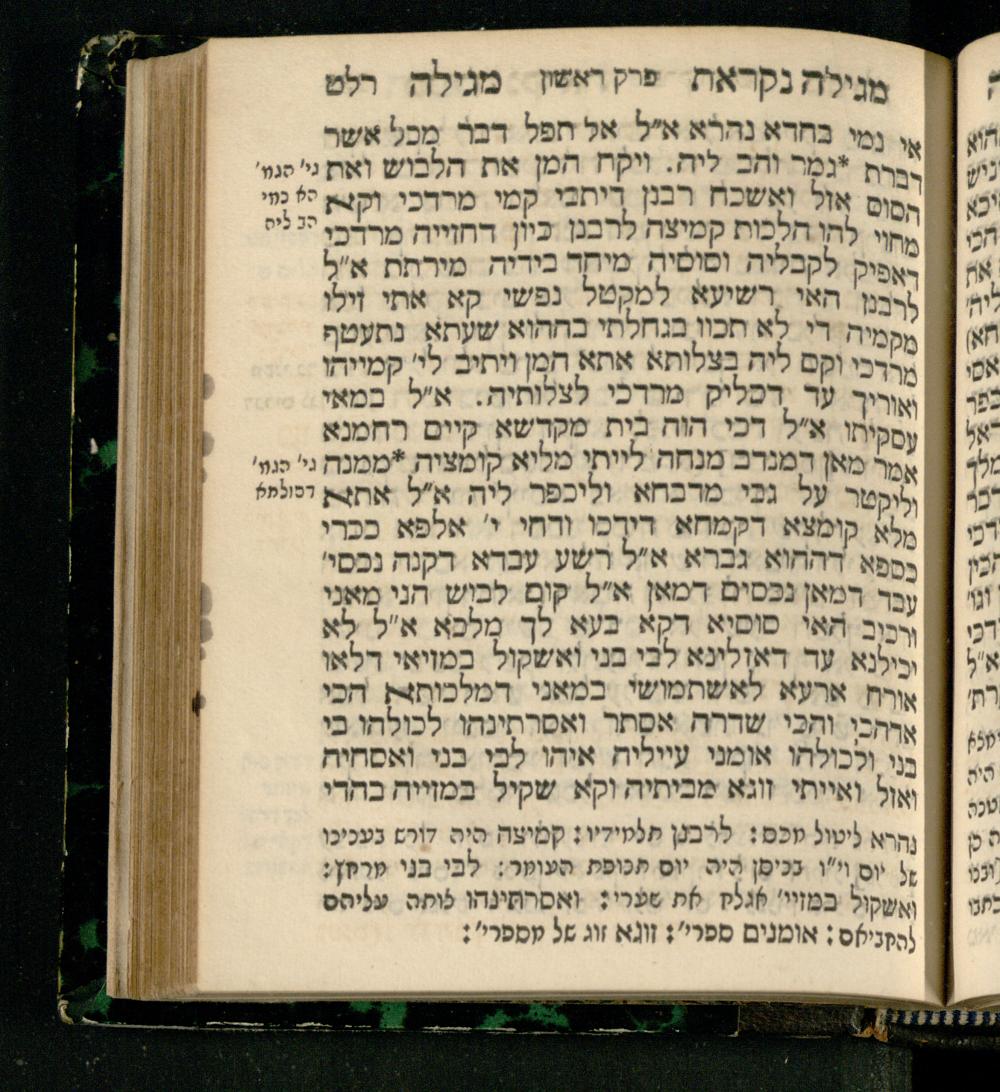 מגילה נקראת פרק ראשון מגילה רלט
אי נמי בחדא נהרא א״ל אל תפל דבר מכל אשר
דברת *גמר והב ליה. ויקח המן את הלבוש ואת
הסוס אזל ואשכח רבנן דיתבי קמי מרדכי וקא
מחוי להו הלכות קמיצה לרבנן כיון דחזייה מרדכי
דאפיק לקבליה וסוסיה מיחד בידיה מירתת א״ל
לרבנן האי רשיעא למקטל נפשי קא אתי זילו
מקמיה די לא תכוו בגחלתי בההוא שעתא נתעטף
מרדכי וקם ליה בצלותא אתא המן ויתיב לי׳ קמייהו
ואוריך עד דסליק מרדכי לצלותיה. א״ל במאי
עסקיתו א״ל דכי הוה בית מקדשא קיים רחמנא
אמר מאן דמנדב מנחה לייתי מליא קומציה *ממנה
וליקטר על גבי מדבחא וליכפר ליה א״ל אתא
מלא קומצא דקמחא דידכו ודחי י׳ אלפא ככרי
כספא דההוא גברא א״ל רשע עבדא דקנה נכסי׳
עבד דמאן נכסים דמאן א״ל קום לבוש הני מאני
ורכיב האי סוסיא דקא בעא לך מלכא א״ל לא
יכילנא עד דאזלינא לבי בני ואשקול במזיאי דלאו
אורח ארעא לאשתמושי במאני דמלכותא הכי
אדהכי והכי שדרה אסתר ואסרתינהו לכולהו בי
בני ולכולהו אומני עייליה איהו לבי בני ואסחיה
ואזל ואייתי זוגא מביתיה וקא שקיל במזייה בהדי
גי׳ הגמ׳
הא כמי
הב ליה
גי׳ הגמ׳
דסולתא
נהרא ליטול מכס: לרבנן תלמידיו: קמיצה היה דורש בענינו
של יום וי״ו בניסן היה יום תנופת העומר: לבי בני מרחץ:
ואשקול במזיי׳ אגלח את שערי: ואסרתינהו צותה עליהם
להחביאם: אומנים ספרי׳: זוגא זוג של מספרי׳: